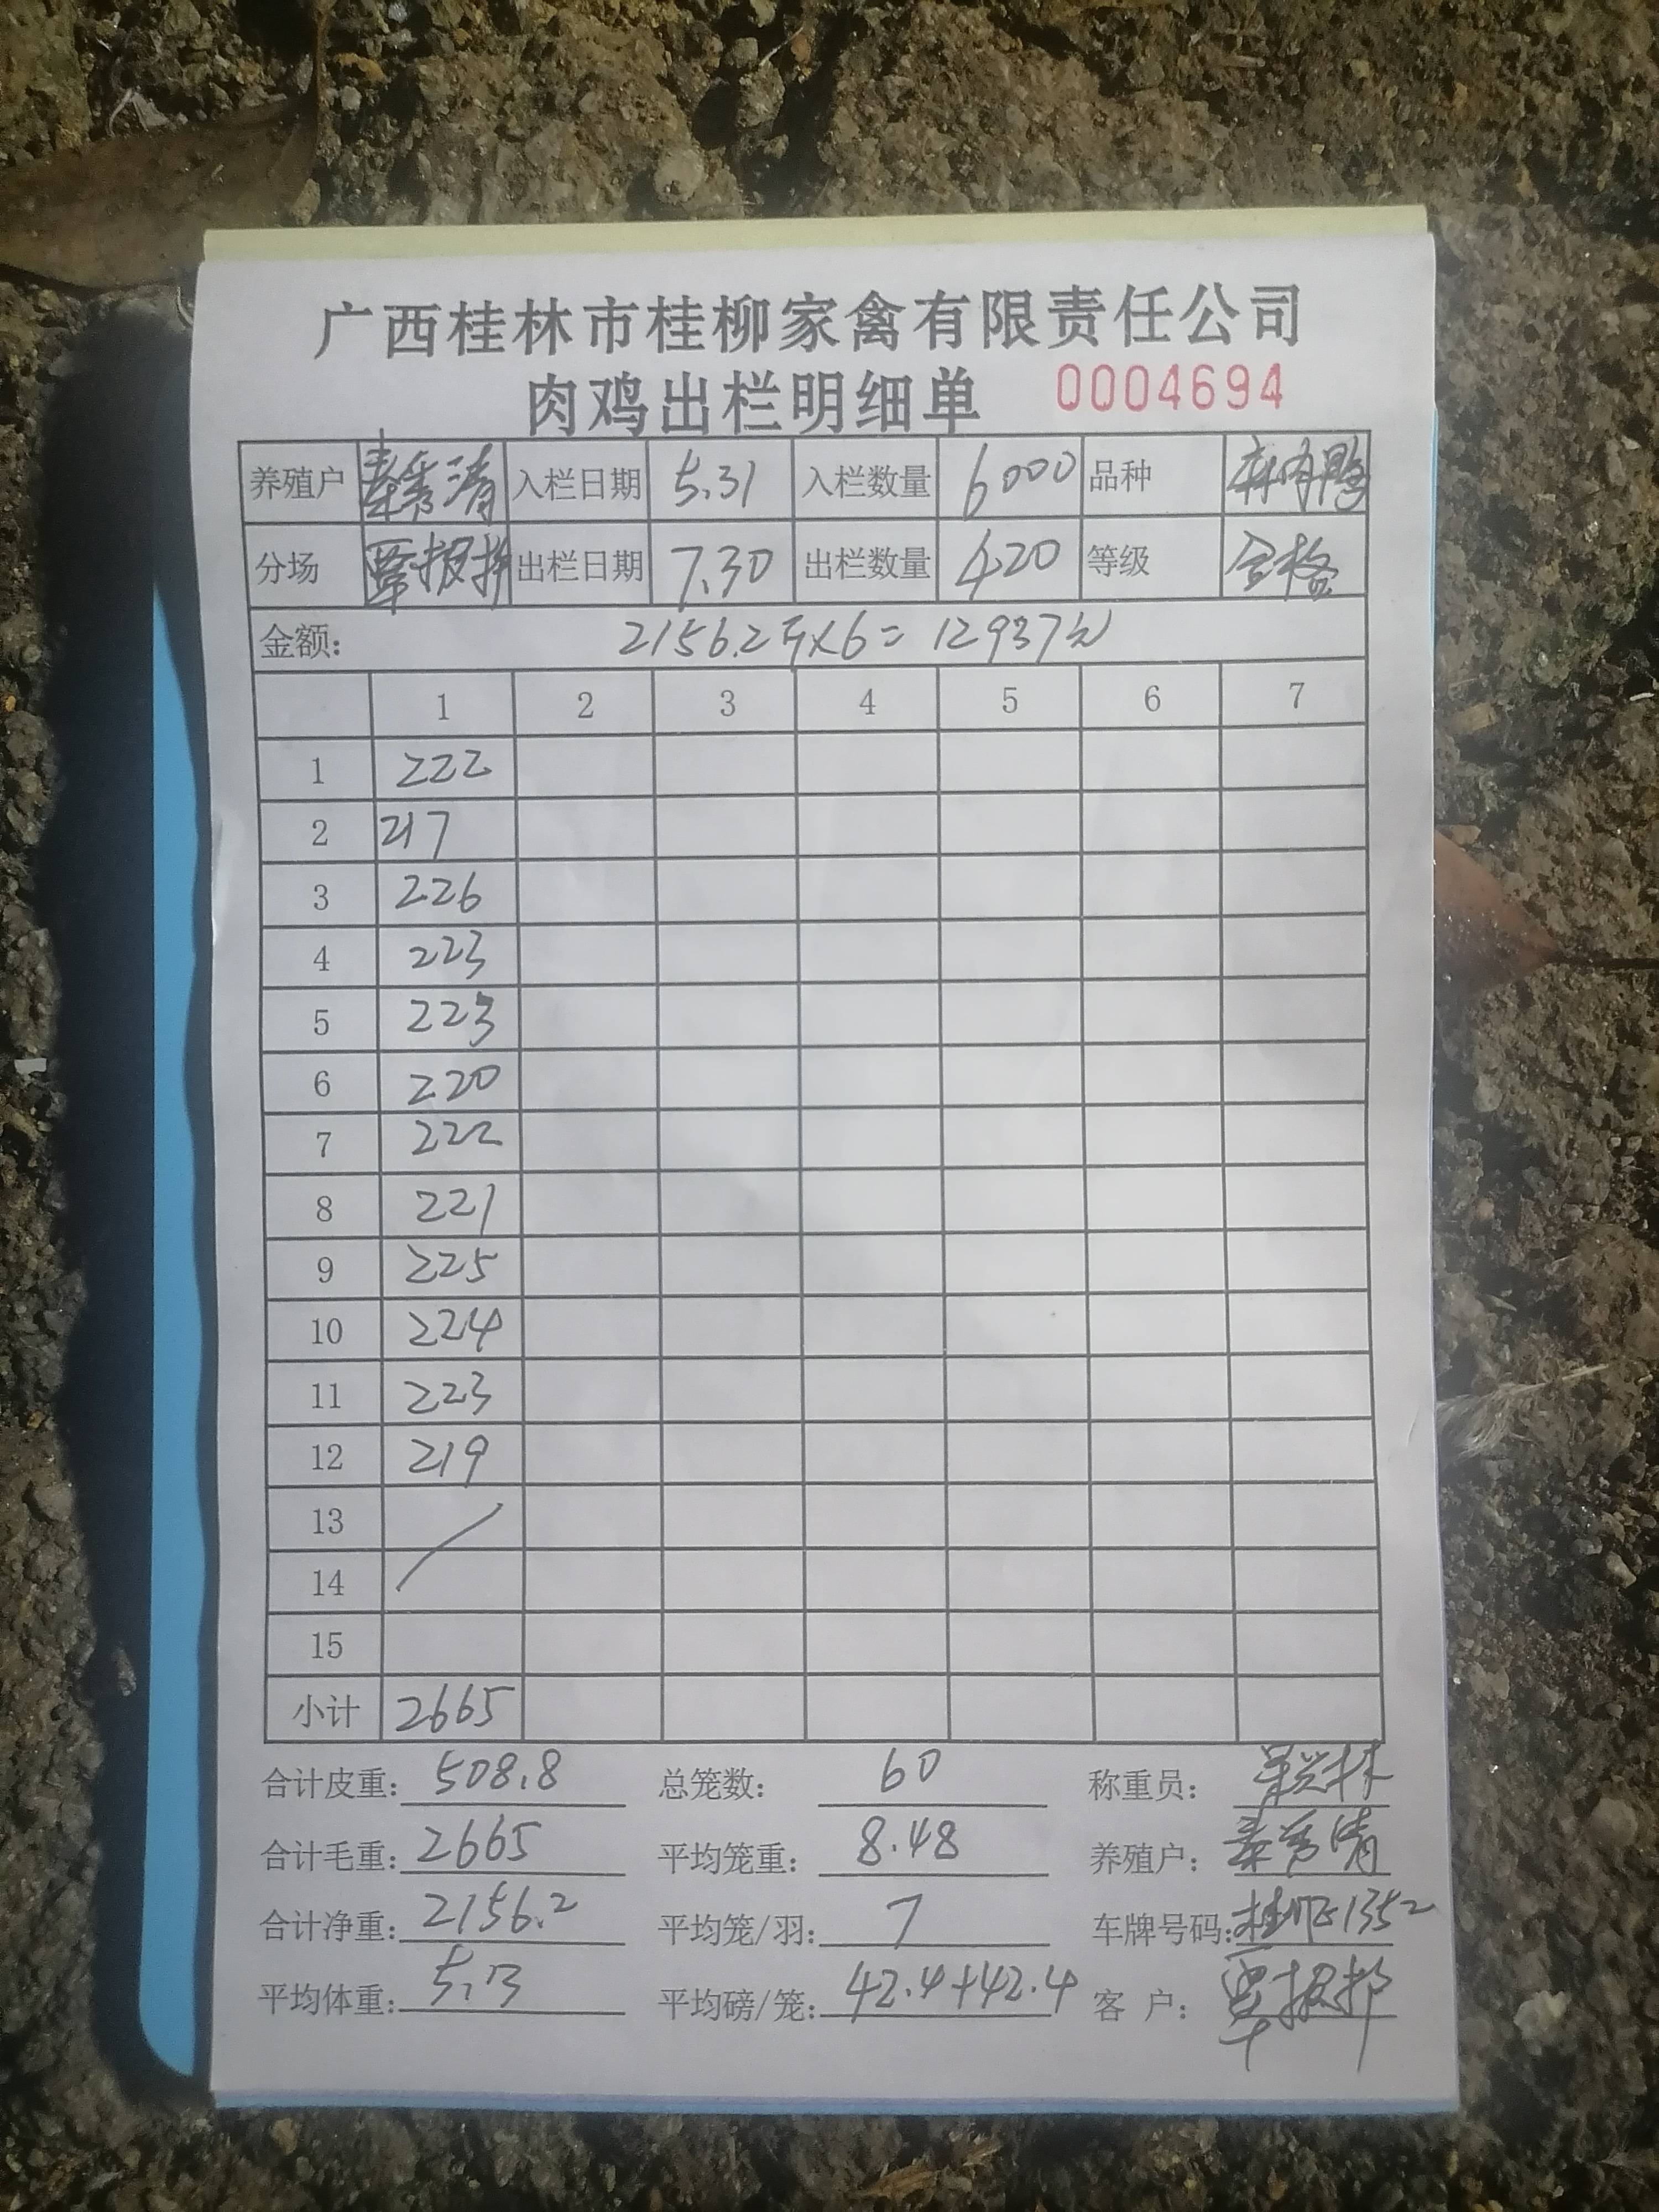 广西桂林市桂柳家禽有限责任公司
肉鸡出栏明细单 0004694
养殖户 秦秀清 入栏日期 5.31 入栏数量 6000 品种
分场 覃振 出栏日期 7.30 出栏数量 420 等级 合格
金额: 2156.2斤×6=12937元
1 2 3 4 5 6 7
1 222
2 217
3 226
4 223
5 223
6 220
7 222
8 221
9 225
10 224
11 223
12 219
13
14
15
小计 2665
合计皮重: 508.8 总笼数: 60 称重员:
合计毛重: 2665 平均笼重: 8.48 养殖户: 秦秀清
合计净重: 2156.2 平均笼/羽: 7 车牌号码: 1352
平均体重: 5.13 平均磅/笼: 42.4+42.4 客 户: 覃振